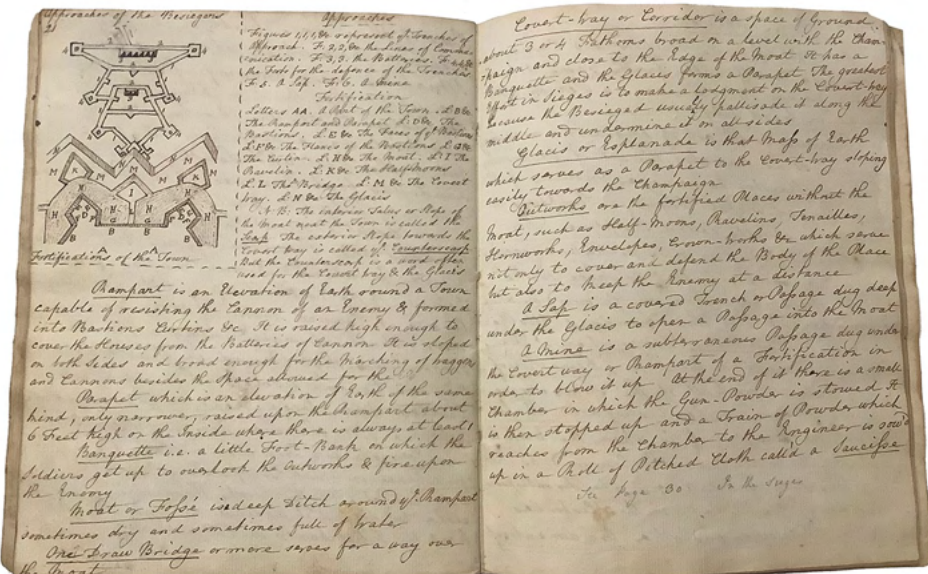 Approaches of the Besiegers
Approaches
Figures 1,1,1,&c represent of Trenches of
Approach. F. 2,2, &c the Lines of Commu-
nication. F. 3,3. the Batteries. F. 4,4 &c
the Forts for the defence of the Trenches
F. 5. a Sap. F. 6. a Mine
Fortification
Letters AA. a Part of the Town. L. B &c
The Rampart and Parapet L. D &c. The
Bastions. L. E &c the Faces of ye Bastions
L. F &c The Flancs of the Bastions L. G &c
The Curtin. L. H &c The Moat. L. I The
Ravelin. L. K &c The Half Moons
L. L The Bridge. L. M &c The Covert
Way. L. N &c The Glacis
N.B. The interior Talus or Slope of
the Moat next the Town is called the
Scarp. The exterior Slope towards the
Covert Way is called ye Counterscarp
But the Counterscarp is a word often
used for the Covert Way & the Glacis
Fortifications of the Town
Rampart is an Elevation of Earth round a Town
capable of resisting the Cannon of an Enemy & formed
into Bastions Curtins &c. It is raised high enough to
cover the Houses from the Batteries of Cannon It is sloped
on both Sides and broad enough for the Marching of baggage
and Cannons besides the Space allowed for the
Parapet which is an elevation of Earth of the same
kind, only narrower, raised upon the Rampart about
6 Feet high on the Inside where there is always at least 1
Banquette i.e. a little Foot-Bank on which the
Soldiers get up to overlook the Outworks & fire upon
the Enemy
Moat or Fossé is a deep Ditch around ye Rampart
sometimes dry and sometimes full of Water
One Draw Bridge or more serves for a way over
the Moat
Covert-Way or Corridor is a space of Ground
about 3 or 4 Fathoms broad on a level with the Cham-
paign and close to the Edge of the Moat It has a
Banquette and the Glacis forms a Parapet The greatest
Effort in Sieges is to make a Lodgment on the Covert-Way
because the Besieged usualy pallisade it along the
middle and undermine it on all sides
Glacis or Esplanade is that Mass of Earth
which serves as a Parapet to the Covert-Way sloping
easily towards the Champaign
Outworks are the fortified Places without the
Moat, such as Half-Moons, Ravelins, Tenailles,
Hornworks, Envelopes, Crown-Works &c which serve
not only to cover and defend the Body of the Place
but also to keep the Enemy at a distance
A Sap is a covered Trench or Passage dug deep
under the Glacis to open a Passage into the Moat
A Mine is a subterraneous Passage dug under
the Covert way or Rampart of a Fortification in
order to blow it up. At the end of it there is a small
Chamber in which the Gun-Powder is stowed It
is then stopped up and a Train of Powder which
reaches from the Chamber to the Engineer is sow'd
up in a Roll of Pitched Cloth call'd a Saucisse
See Page 30 In the Sieges